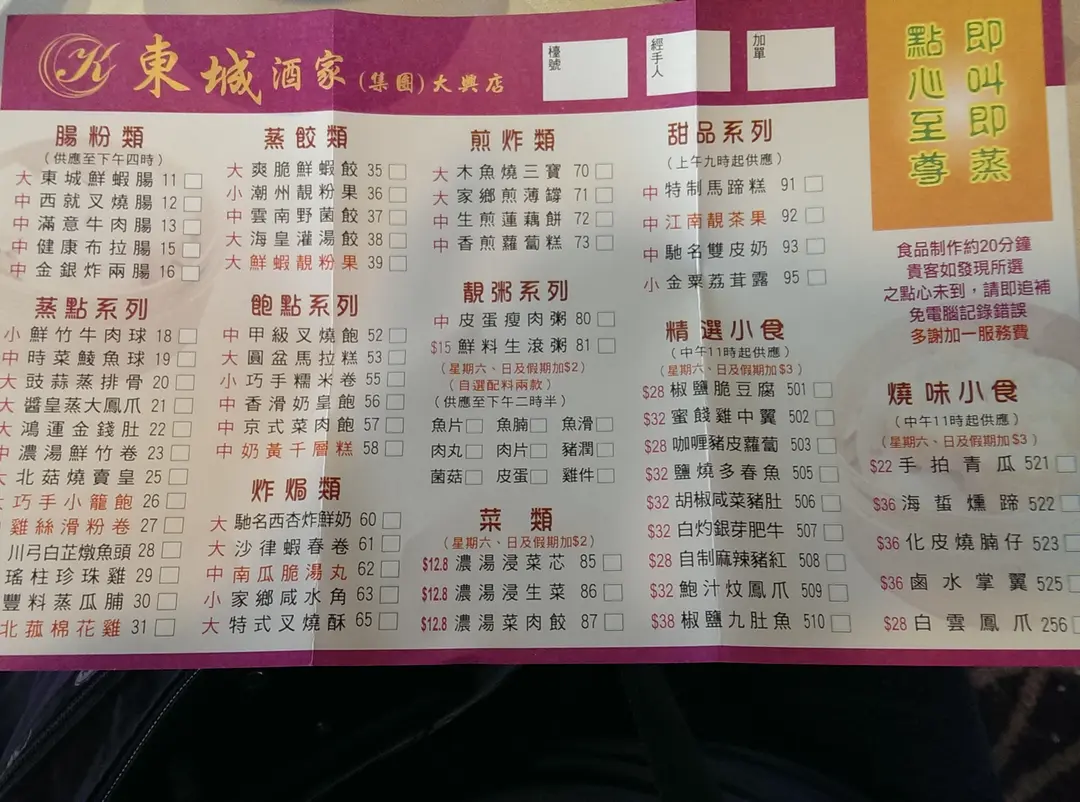 東城酒家(集團)大興店
檯號
經手人
加單
即叫即蒸
點心至尊
腸粉類
(供應至下午四時)
大 東城鮮蝦腸 11
中 西就叉燒腸 12
中 滿意牛肉腸 13
中 健康布拉腸 15
中 金銀炸兩腸 16
蒸點系列
小 鮮竹牛肉球 18
中 時菜鯪魚球 19
大 豉蒜蒸排骨 20
大 醬皇蒸大鳳爪 21
大 鴻運金錢肚 22
中 濃湯鮮竹卷 23
大 北菇燒賣皇 25
大 巧手小籠飽 26
雞絲滑粉卷 27
川弓白芷燉魚頭 28
瑤柱珍珠雞 29
豐料蒸瓜脯 30
北菰棉花雞 31
蒸餃類
大 爽脆鮮蝦餃 35
小 潮州靚粉果 36
中 雲南野菌餃 37
大 海皇灌湯餃 38
大 鮮蝦靚粉果 39
飽點系列
中 甲級叉燒飽 52
大 圓盆馬拉糕 53
小 巧手糯米卷 55
中 香滑奶皇飽 56
中 京式菜肉飽 57
中 奶黃千層糕 58
炸焗類
大 馳名西杏炸鮮奶 60
大 沙律蝦春卷 61
中 南瓜脆湯丸 62
小 家鄉咸水角 63
大 特式叉燒酥 65
煎炸類
大 木魚燒三寶 70
大 家鄉煎薄罉 71
中 生煎蓮藕餅 72
中 香煎蘿蔔糕 73
靚粥系列
中 皮蛋瘦肉粥 80
$15 鮮料生滾粥 81
(星期六、日及假期加$2)
(自選配料兩款)
(供應至下午二時半)
魚片 魚腩 魚滑
肉丸 肉片 豬潤
菌菇 皮蛋 雞件
菜類
(星期六、日及假期加$2)
$12.8 濃湯浸菜芯 85
$12.8 濃湯浸生菜 86
$12.8 濃湯菜肉餃 87
甜品系列
(上午九時起供應)
中 特制馬蹄糕 91
中 江南靚茶果 92
中 馳名雙皮奶 93
小 金粟荔茸露 95
精選小食
(中午11時起供應)
(星期六、日及假期加$3)
$28 椒鹽脆豆腐 501
$32 蜜餞雞中翼 502
$28 咖喱豬皮蘿蔔 503
$32 鹽燒多春魚 505
$32 胡椒咸菜豬肚 506
$32 白灼銀芽肥牛 507
$28 自制麻辣豬紅 508
$32 鮑汁炆鳳爪 509
$38 椒鹽九肚魚 510
食品制作約20分鐘
貴客如發現所選
之點心未到，請即追補
免電腦記錄錯誤
多謝加一服務費
燒味小食
(中午11時起供應)
(星期六、日及假期加$3)
$22 手拍青瓜 521
$36 海蜇燻蹄 522
$36 化皮燒腩仔 523
$36 鹵水掌翼 525
$28 白雲鳳爪 256